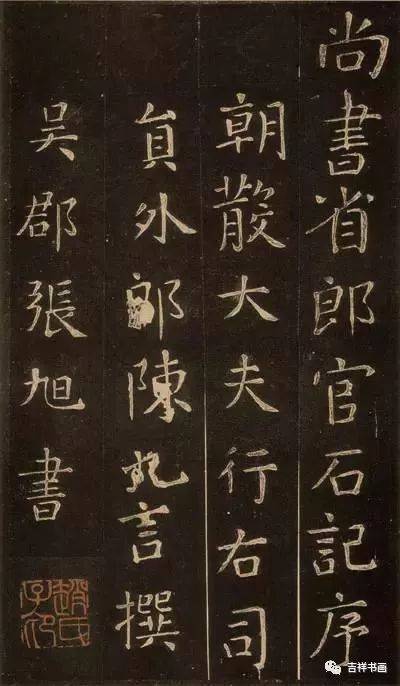 尚書省郎官石記序
朝散大夫行右司
員外郎陳九言撰
吳郡張旭書
趙氏子印
吉祥书画